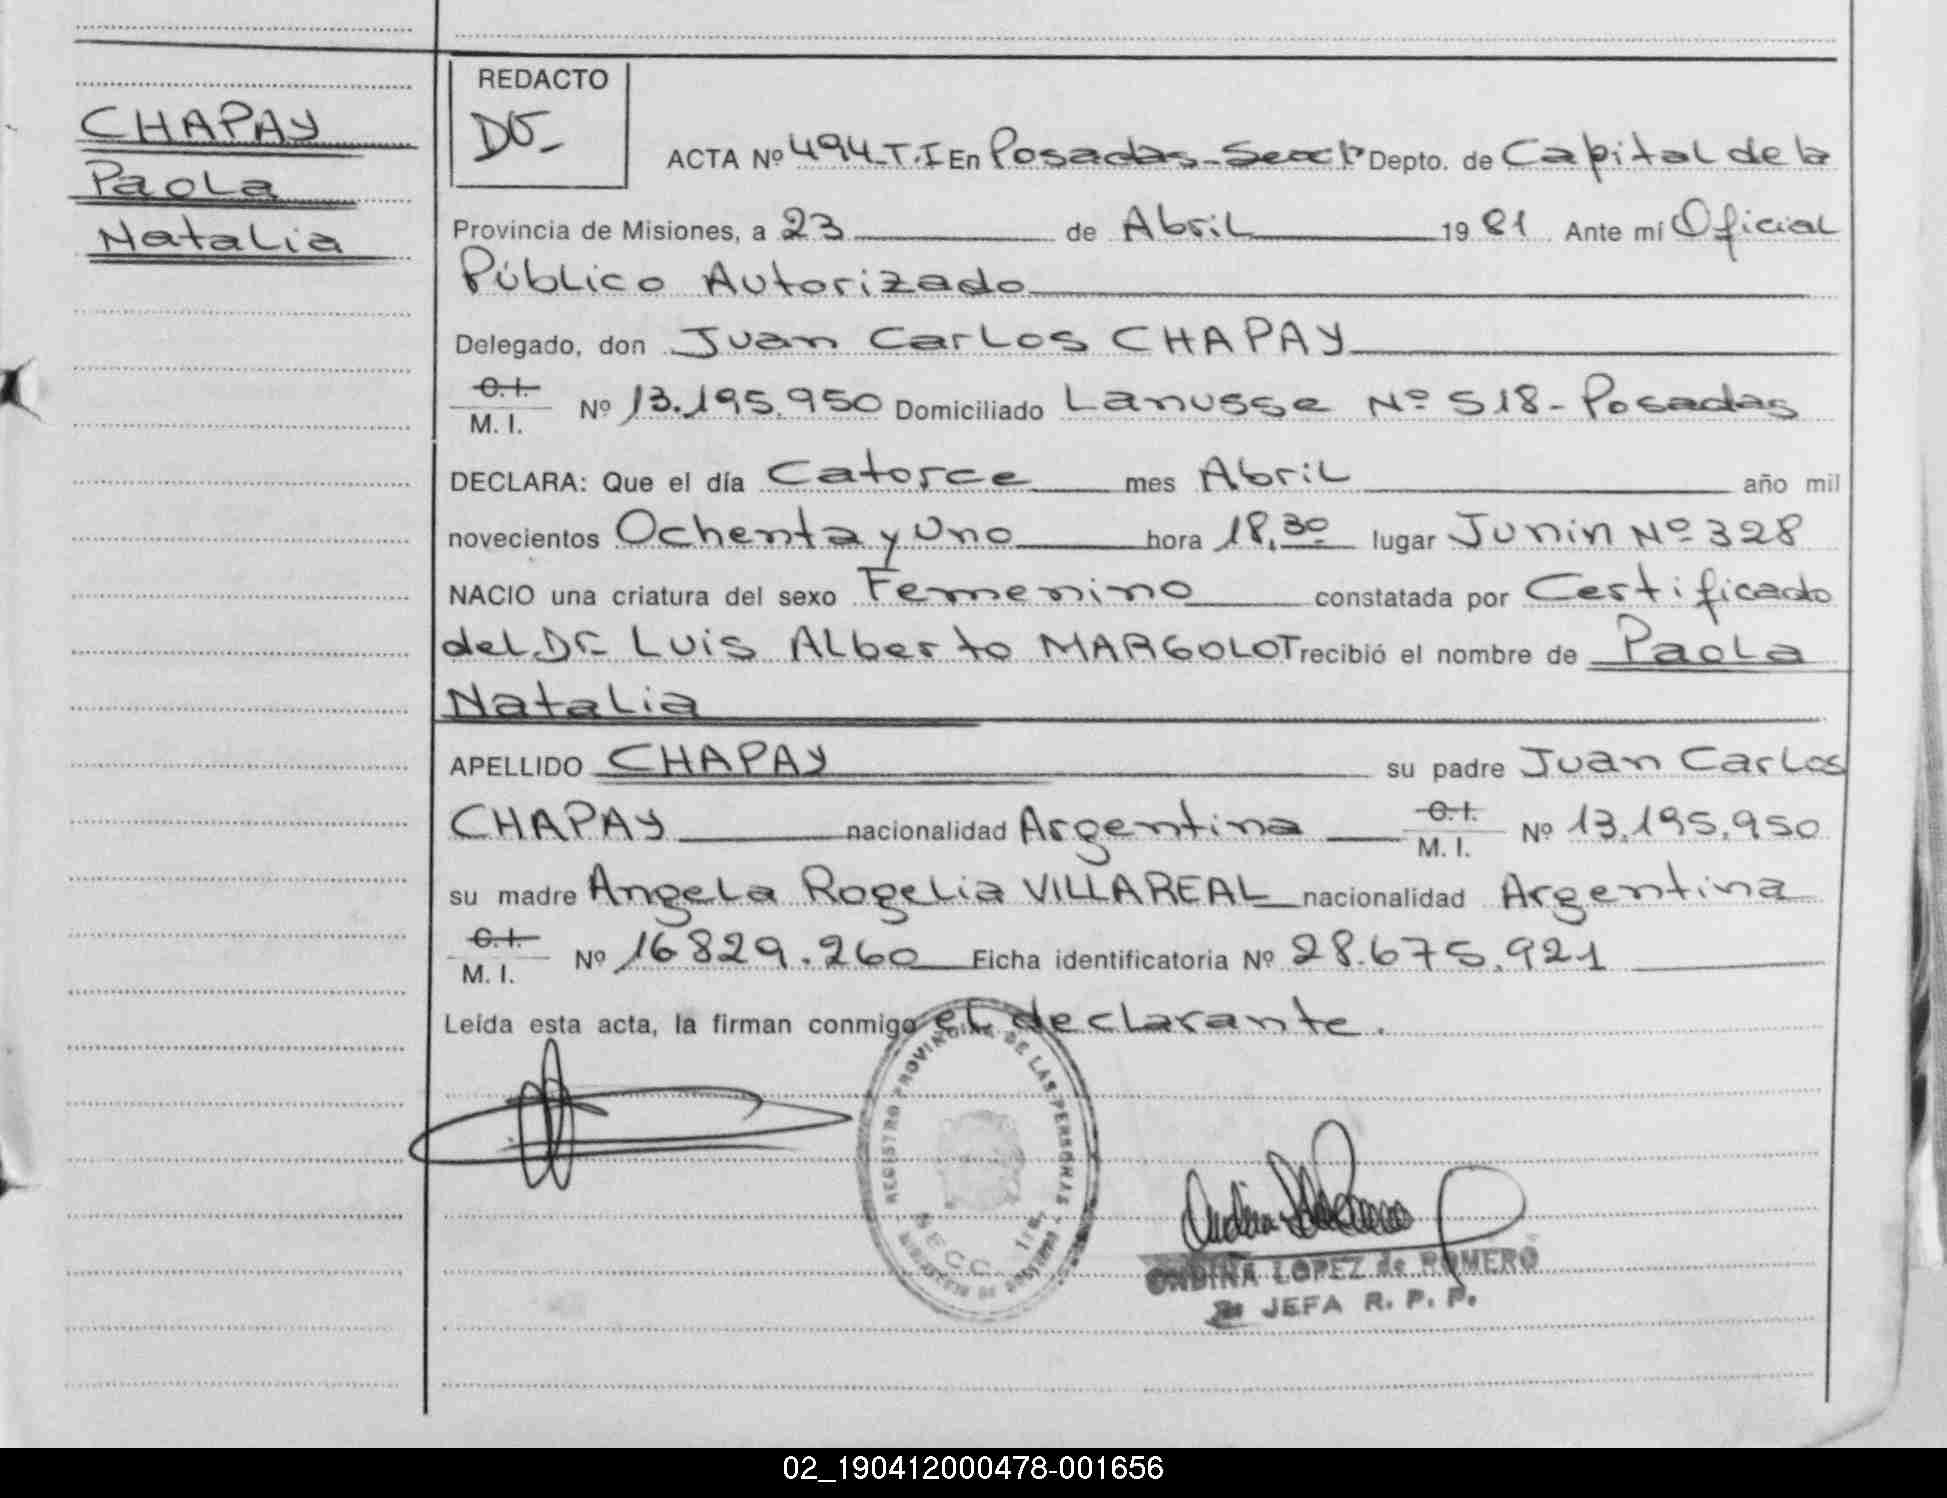 CHAPAY
Paola
Natalia
REDACTO
ACTA Nº 494-T.I En Posadas-Secc 1ª Depto. de Capital de la
Provincia de Misiones, a 23 de Abril 1981 Ante mí Oficial
Público Autorizado
Delegado, don Juan Carlos CHAPAY
C.I.
M. I. Nº 13.195.950 Domiciliado Lanusse Nº 518-Posadas
DECLARA: Que el día Catorce mes Abril año mil
novecientos Ochenta y Uno hora 18,30 lugar Junin Nº 328
NACIO una criatura del sexo Femenino constatada por Certificado
del Dr Luis Alberto MARGOLOT recibió el nombre de Paola
Natalia
APELLIDO CHAPAY su padre Juan Carlos
CHAPAY nacionalidad Argentina C.I. M. I. Nº 13.195.950
su madre Angela Rogelia VILLAREAL nacionalidad Argentina
C.I.
M. I. Nº 16829.260 Ficha identificatoria Nº 28.675.921
Leída esta acta, la firman conmigo el declarante.
REGISTRO PROVINCIAL DE LAS PERSONAS
SECC. 1ra.
ONDINA LOPEZ de ROMERO
JEFA R. P. P.
02_190412000478-001656